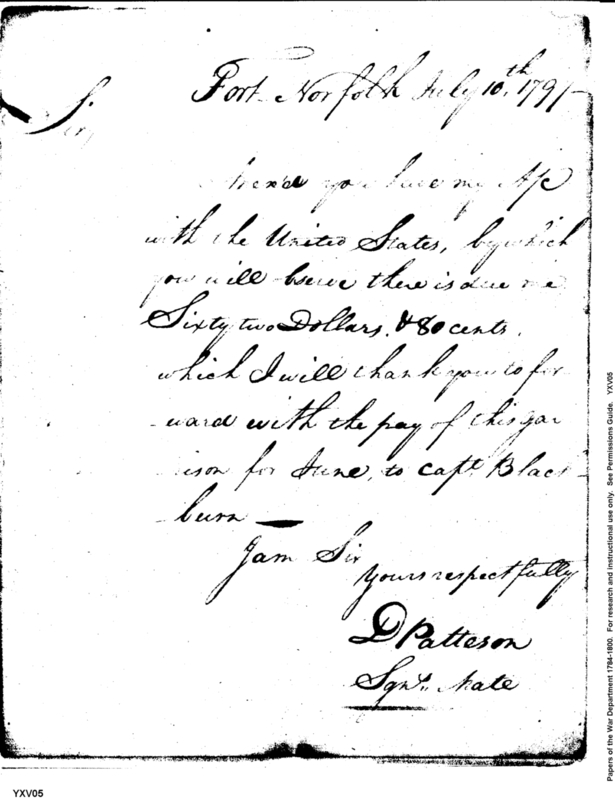 Fort Norfolk July 10th, 1797
Sir,
you have my A/c
with the United States, by which
you will bserve there is due me
Sixty two Dollars. & 80 cents.
which I will thank you to for
ward with the pay of this gar
ison for June, to Capt. Black
burn —
I am Sir
Yours respectfully
D Patteson
Sgns. Mate
YXV05
Papers of the War Department 1784-1800. For research and instructional use only. See Permissions Guide. YXV05